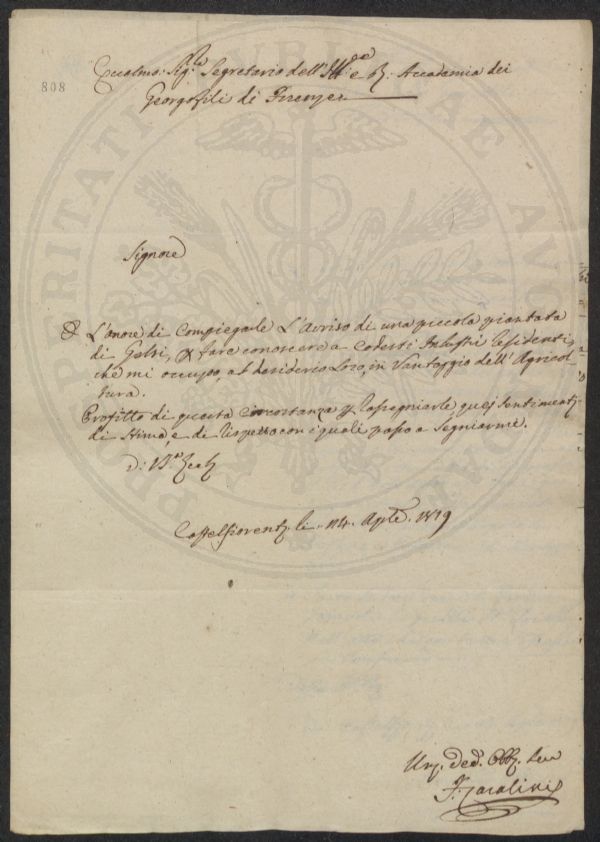 808
Eccelmo: Sigre Segretario dell'Ill e R. Accademia dei
Georgofili di Firenze
Signore
L'onore di Compiegarle L'avviso di una piccola piantata
di Gelsi, p fare conoscere a Codesti Industri Residenti,
che mi occupo, al desiderio Loro, in Vantaggio dell'Agricol
tura.
Profitto di questa Circostanza p Rassegniarle quej Sentimenti
di Stima, e di Rispetto con i quali passo a Segniarmi.
di
Castelfiorento li 14 Aple. 1819
Um. Ded. Obb. Ser
PUBLICAE
PROSPERITATI
AUGENDAE